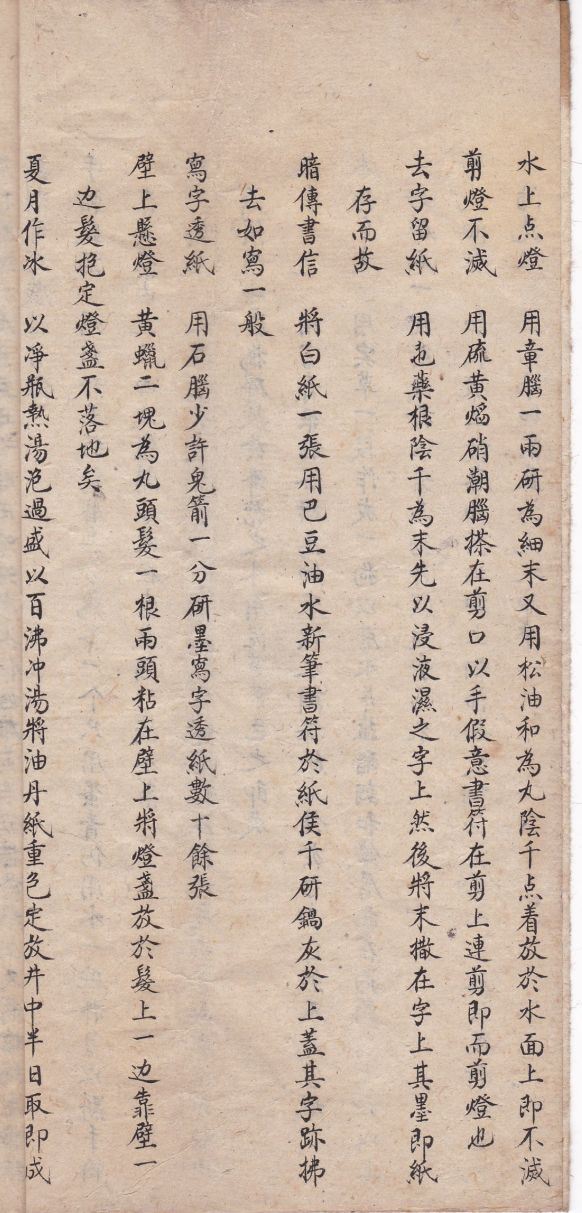 水上点燈　用章腦一兩研為細末又用松油和為丸陰干点着放於水面上即不滅
剪燈不滅　用硫黃焰硝潮腦搽在剪口以手假意書符在剪上連剪即而剪燈也
去字留紙　用芭藥根陰干為末先以浸液濕之字上然後將末撒在字上其墨即紙
存而故
暗傳書信　將白紙一張用巴豆油水新筆書符於紙侯干研鍋灰於上蓋其字跡拂
去如寫一般
寫字透紙　用石腦少許鬼箭一分研墨寫字透紙數十餘張
壁上懸燈　黃蠟二塊為丸頭髮一根兩頭粘在壁上將燈盞放於髮上一边靠壁一
边髮抱定燈盞不落地矣
夏月作冰　以凈瓶熱湯泡過盛以百沸冲湯將油丹紙重包定放井中半日取即成